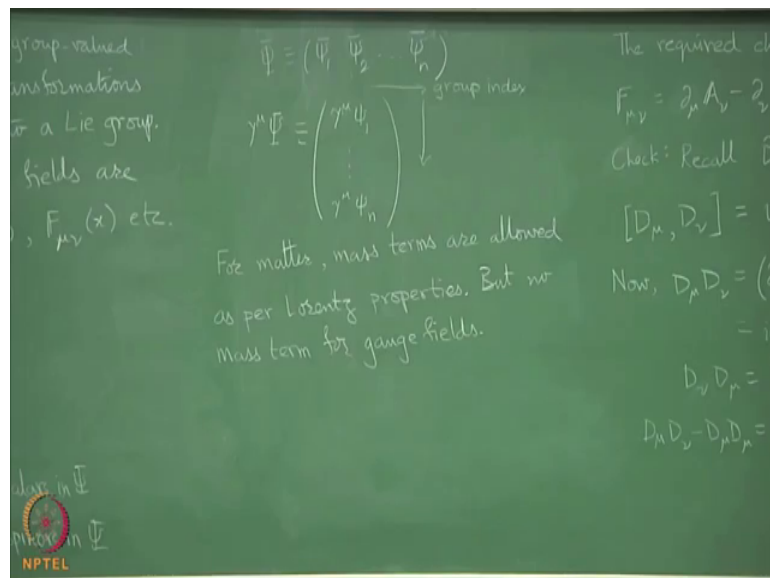 group-valued
ansformations
to a Lie group.
fields are
), F_μν(x) etc.
alars in Ψ
pinors in Ψ
Ψ̄ ≡ (Ψ̄₁ Ψ̄₂ ... Ψ̄ₙ)
group index
γ^μ Ψ ≡ ( γ^μ ψ₁
⋮
γ^μ ψₙ )
For matter, mass terms are allowed
as per Lorentz properties. But no
mass term for gauge fields.
The required ch
F_μν = ∂_μ A_ν − ∂_ν
Check: Recall D
[D_μ, D_ν] =
Now, D_μ D_ν = (∂
− i
D_ν D_μ =
D_μ D_ν − D_μ D_μ =
NPTEL